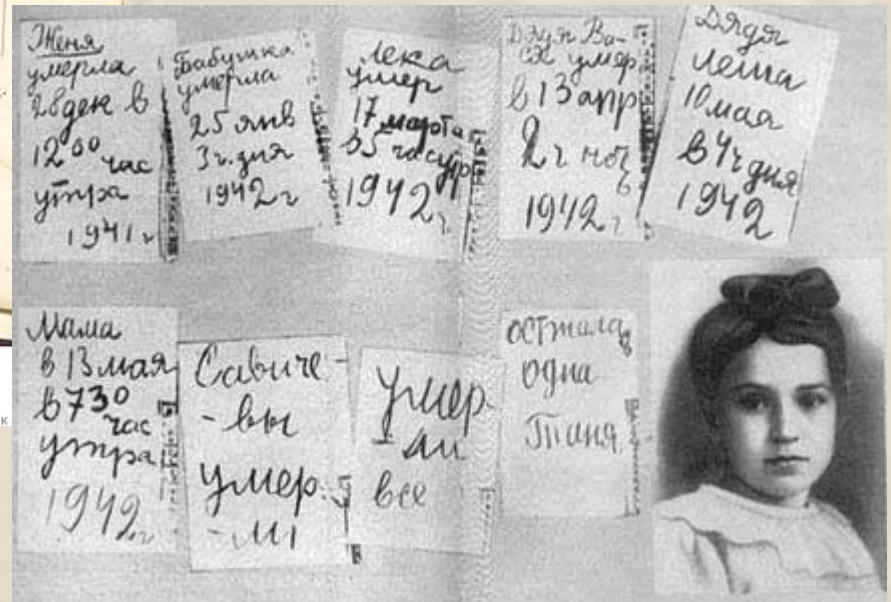 Женя
умерла
28 дек в
12 00 час
утра
1941 г
Бабушка
умерла
25 янв
3 ч. дня
1942 г
Лека
умер
17 марта
в 5 час утр
1942 г
Дядя Ва-
ся умер
в 13 апр
2 ч ноч
1942 г
Дядя
Леша
10 мая
в 4 ч дня
1942
Мама
в 13 мая
в 7 30
час
утра
1942 г
Савиче-
-вы
умер.
-ли
Умер
-ли
все
Осталась
одна
Таня
к